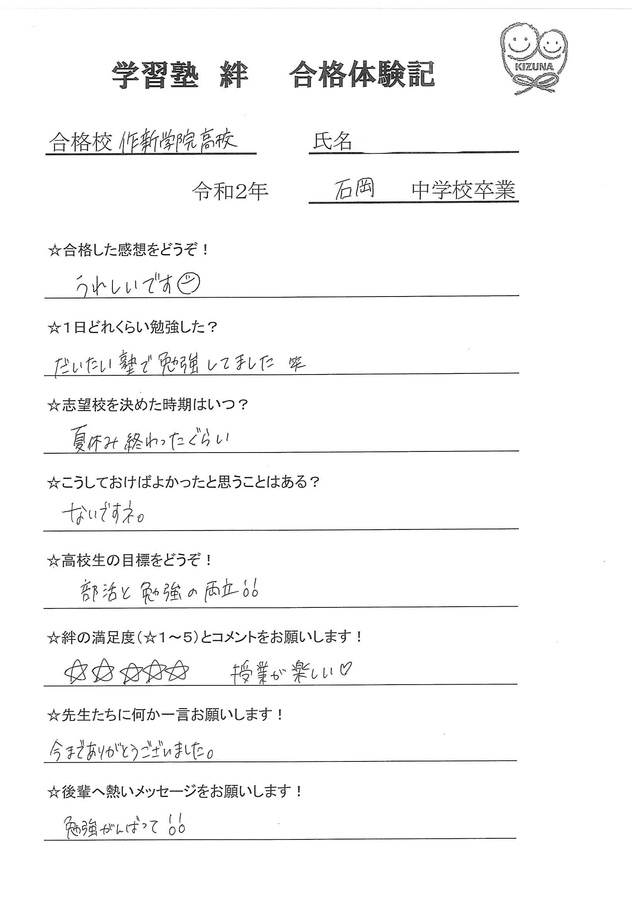 学習塾 絆 合格体験記
KIZUNA
合格校 作新学院高校 氏名
令和2年 石岡 中学校卒業
☆合格した感想をどうぞ！
うれしいです
☆1日どれくらい勉強した？
だいたい塾で勉強してました 笑
☆志望校を決めた時期はいつ？
夏休み終わったぐらい
☆こうしておけばよかったと思うことはある？
ないですネ。
☆高校生の目標をどうぞ！
部活と勉強の両立!!
☆絆の満足度（☆1～5）とコメントをお願いします！
☆☆☆☆☆ 授業が楽しい♡
☆先生たちに何か一言お願いします！
今までありがとうございました。
☆後輩へ熱いメッセージをお願いします！
勉強がんばって!!